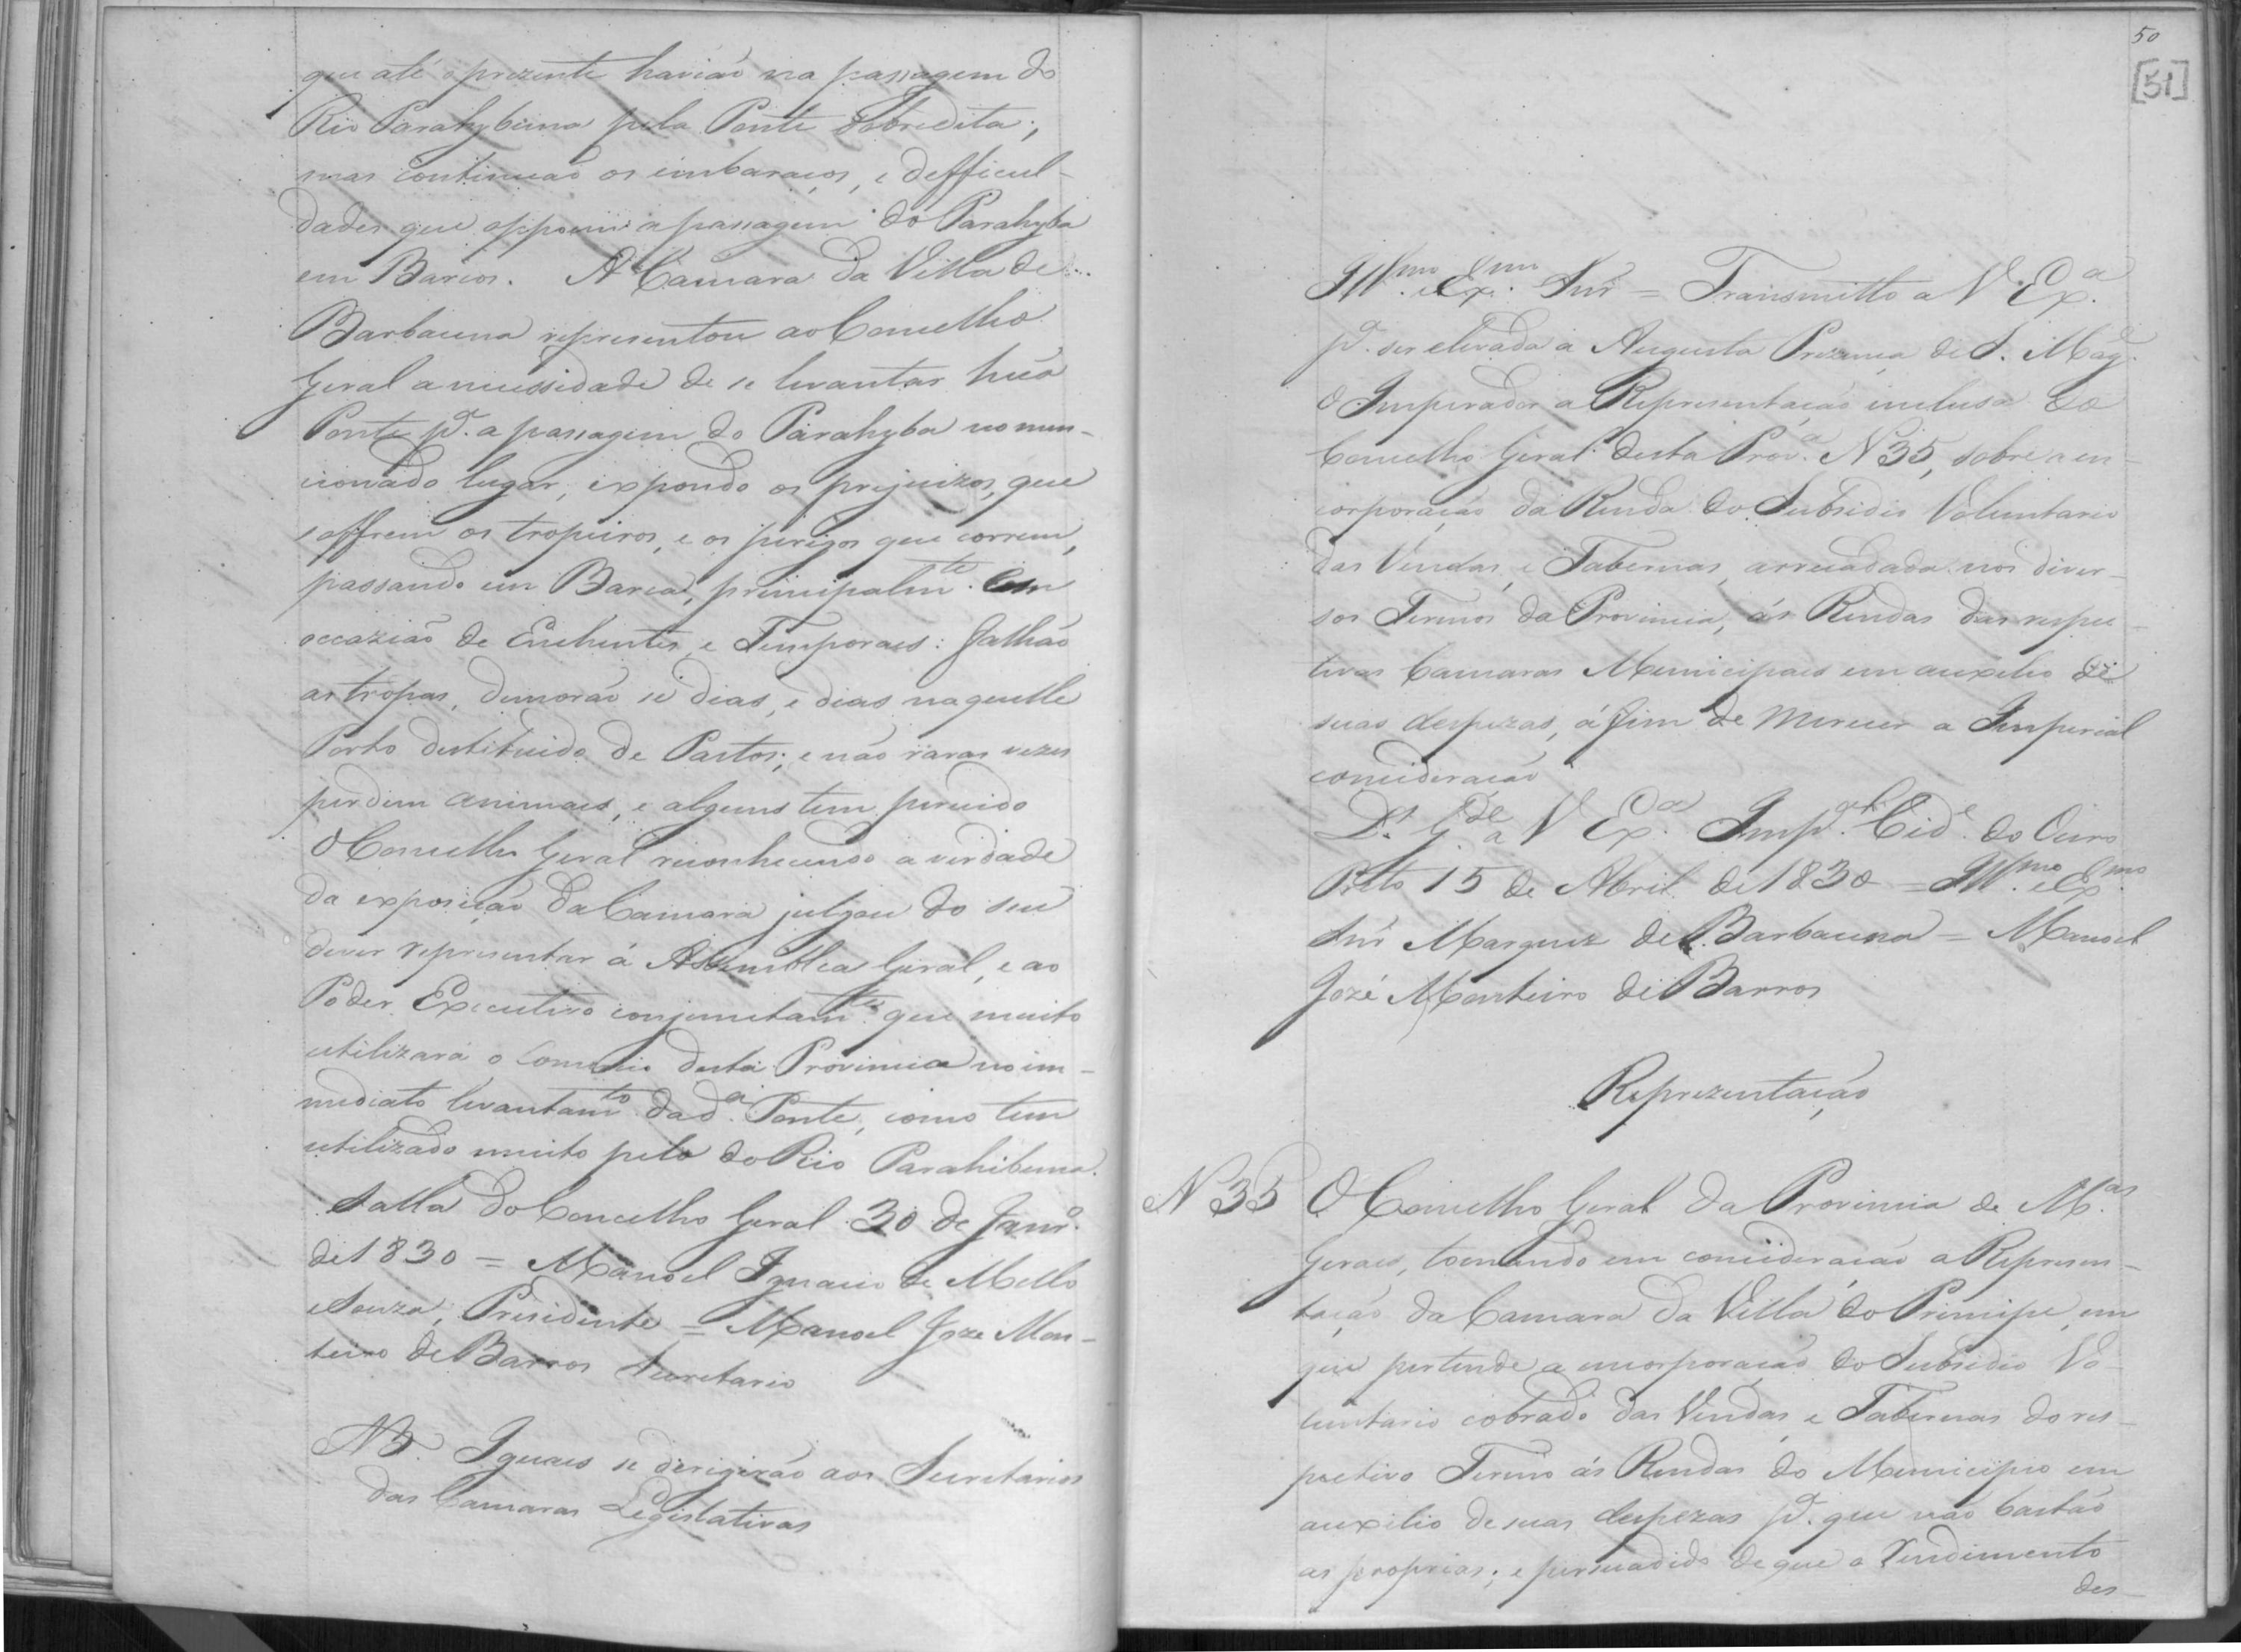 que até o prezente havião na passagem do
Rio Parahybuna pela Ponte sobredita;
mas continuão os imbaraços, e defficul-
dades que oppoem a passagem do Parahyba
em Barcos. A Camara da Villa de
Barbacena representou ao Concelho
Geral a necessidade de se levantar hũa
Ponte pª. a passagem do Parahyba no men-
cionado lugar, expondo os prejuizos, que
soffrem os tropeiros, e os perigos que correm,
passando em Barca, principalmte. em
occazião de Enchentes, e Temporaes: falhão
as tropas, demorão se dias, e dias naquelle
Porto destituido de Pastos; e não raras vezes
perdem animaes, e alguns tem perecido
O Concelho Geral reconhecendo a verdade
da exposição da Camara julgou do seu
dever representar á Assemblea Geral, e ao
Poder Executivo conjunctamte. que muito
utilizará o Comercio desta Provincia no im-
mediato levantamto. da dª. Ponte, como tem
utilizado muito pela do Rio Parahibuna.
Salla do Concelho Geral 30 de Janrº.
de 1830 = Manoel Ignacio de Mello
e Souza, Presidente = Manoel Joze Mon-
teiro de Barros Secretario
NB. Iguaes se derigirão aos Secretarios
das Camaras Legislativas
50
[51]
Illmo. e Exmo. Snr = Transmitto a V. Exª.
pª. ser elevada á Augusta Prezença de S. Mage.
O Imperador a Representação inclusa do
Concelho Geral desta Provª. N 35, sobre a en-
corporação da Renda do Subsidio Voluntario
das Vendas, e Tabernas, arrecadada nos diver-
sos Termos da Provincia, ás Rendas das respec-
tivas Camaras Municipaes em auxilio de
suas despezas, á fim de merecer a Imperial
concideração
Ds. Gde. a V Exª. Impal. Cide. do Ouro
Preto 15 de Abril de 1830 = Illmo. e Exmo.
Snr Marquez de Barbacena = Manoel
José Monteiro de Barros
Reprezentação
N 35 O Concelho Geral da Provincia de Mas.
Geraes, tomando em concideração a Represen-
tação da Camara da Villa do Principe, em
que pertende a encorporação do Subsidio Vo-
luntario cobrado das Vendas, e Tabernas do res-
pectivo Termo ás Rendas do Municipio em
auxilio de suas despezas pª. que não bastão
as proprias; e persuadido de que o Rendimento
des-